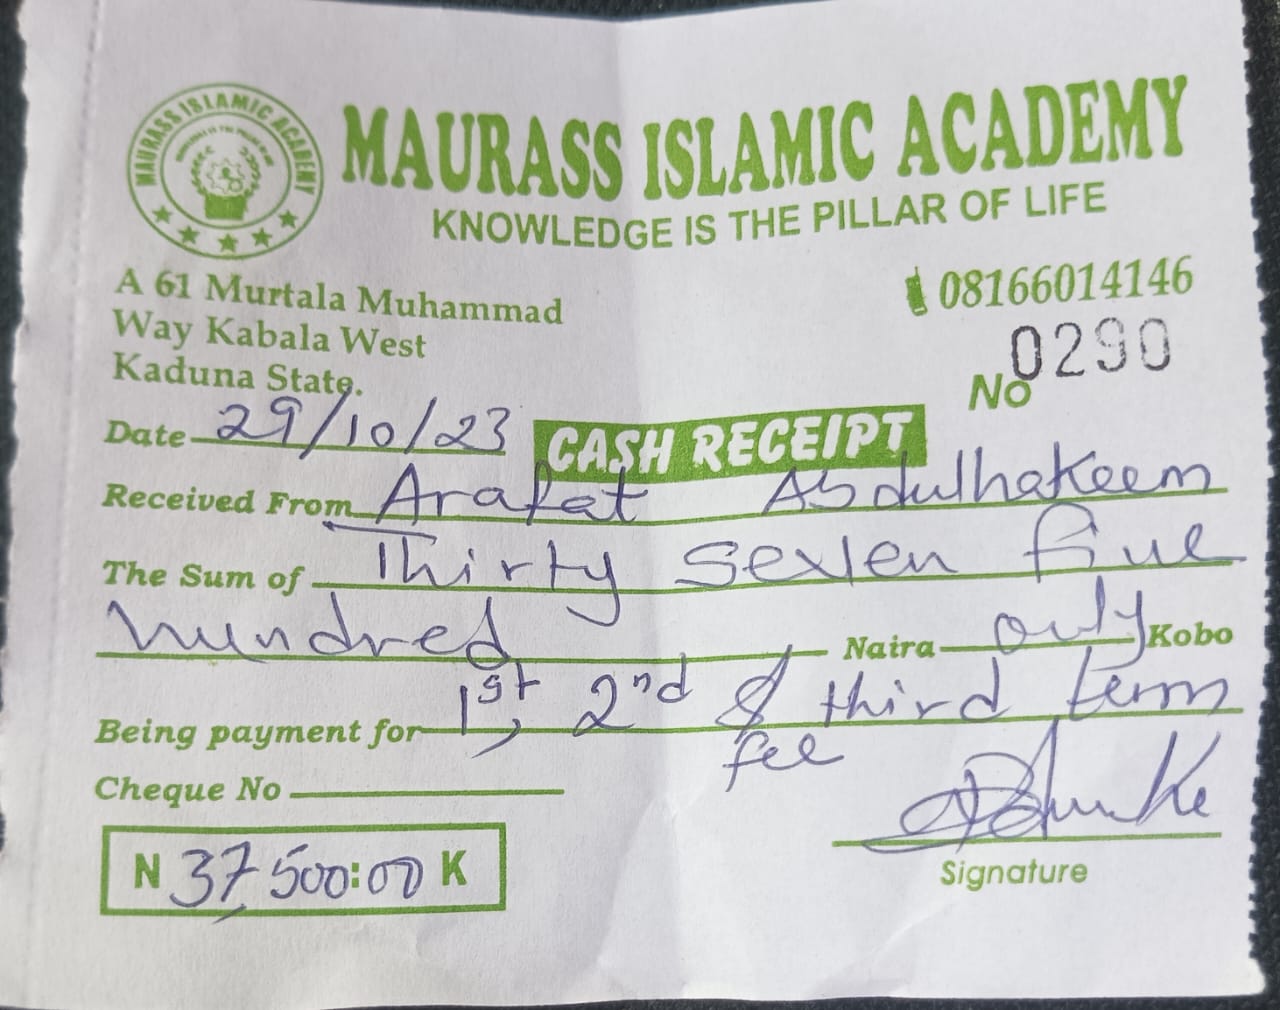 MAURASS ISLAMIC ACADEMY
MAURASS ISLAMIC ACADEMY
KNOWLEDGE IS THE PILLAR OF LIFE
A 61 Murtala Muhammad
Way Kabala West
Kaduna State.
08166014146
No 0290
Date 29/10/23
CASH RECEIPT
Received From Arafat Abdulhakeem
The Sum of Thirty Seven five
hundred Naira only Kobo
Being payment for 1st, 2nd & third term
fee
Cheque No
N 37,500:00 K
Signature